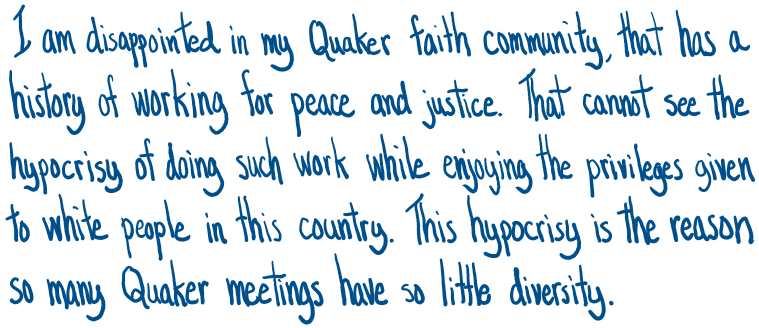 I am disappointed in my Quaker faith community, that has a
history of working for peace and justice. That cannot see the
hypocrisy of doing such work while enjoying the privileges given
to white people in this country. This hypocrisy is the reason
so many Quaker meetings have so little diversity.